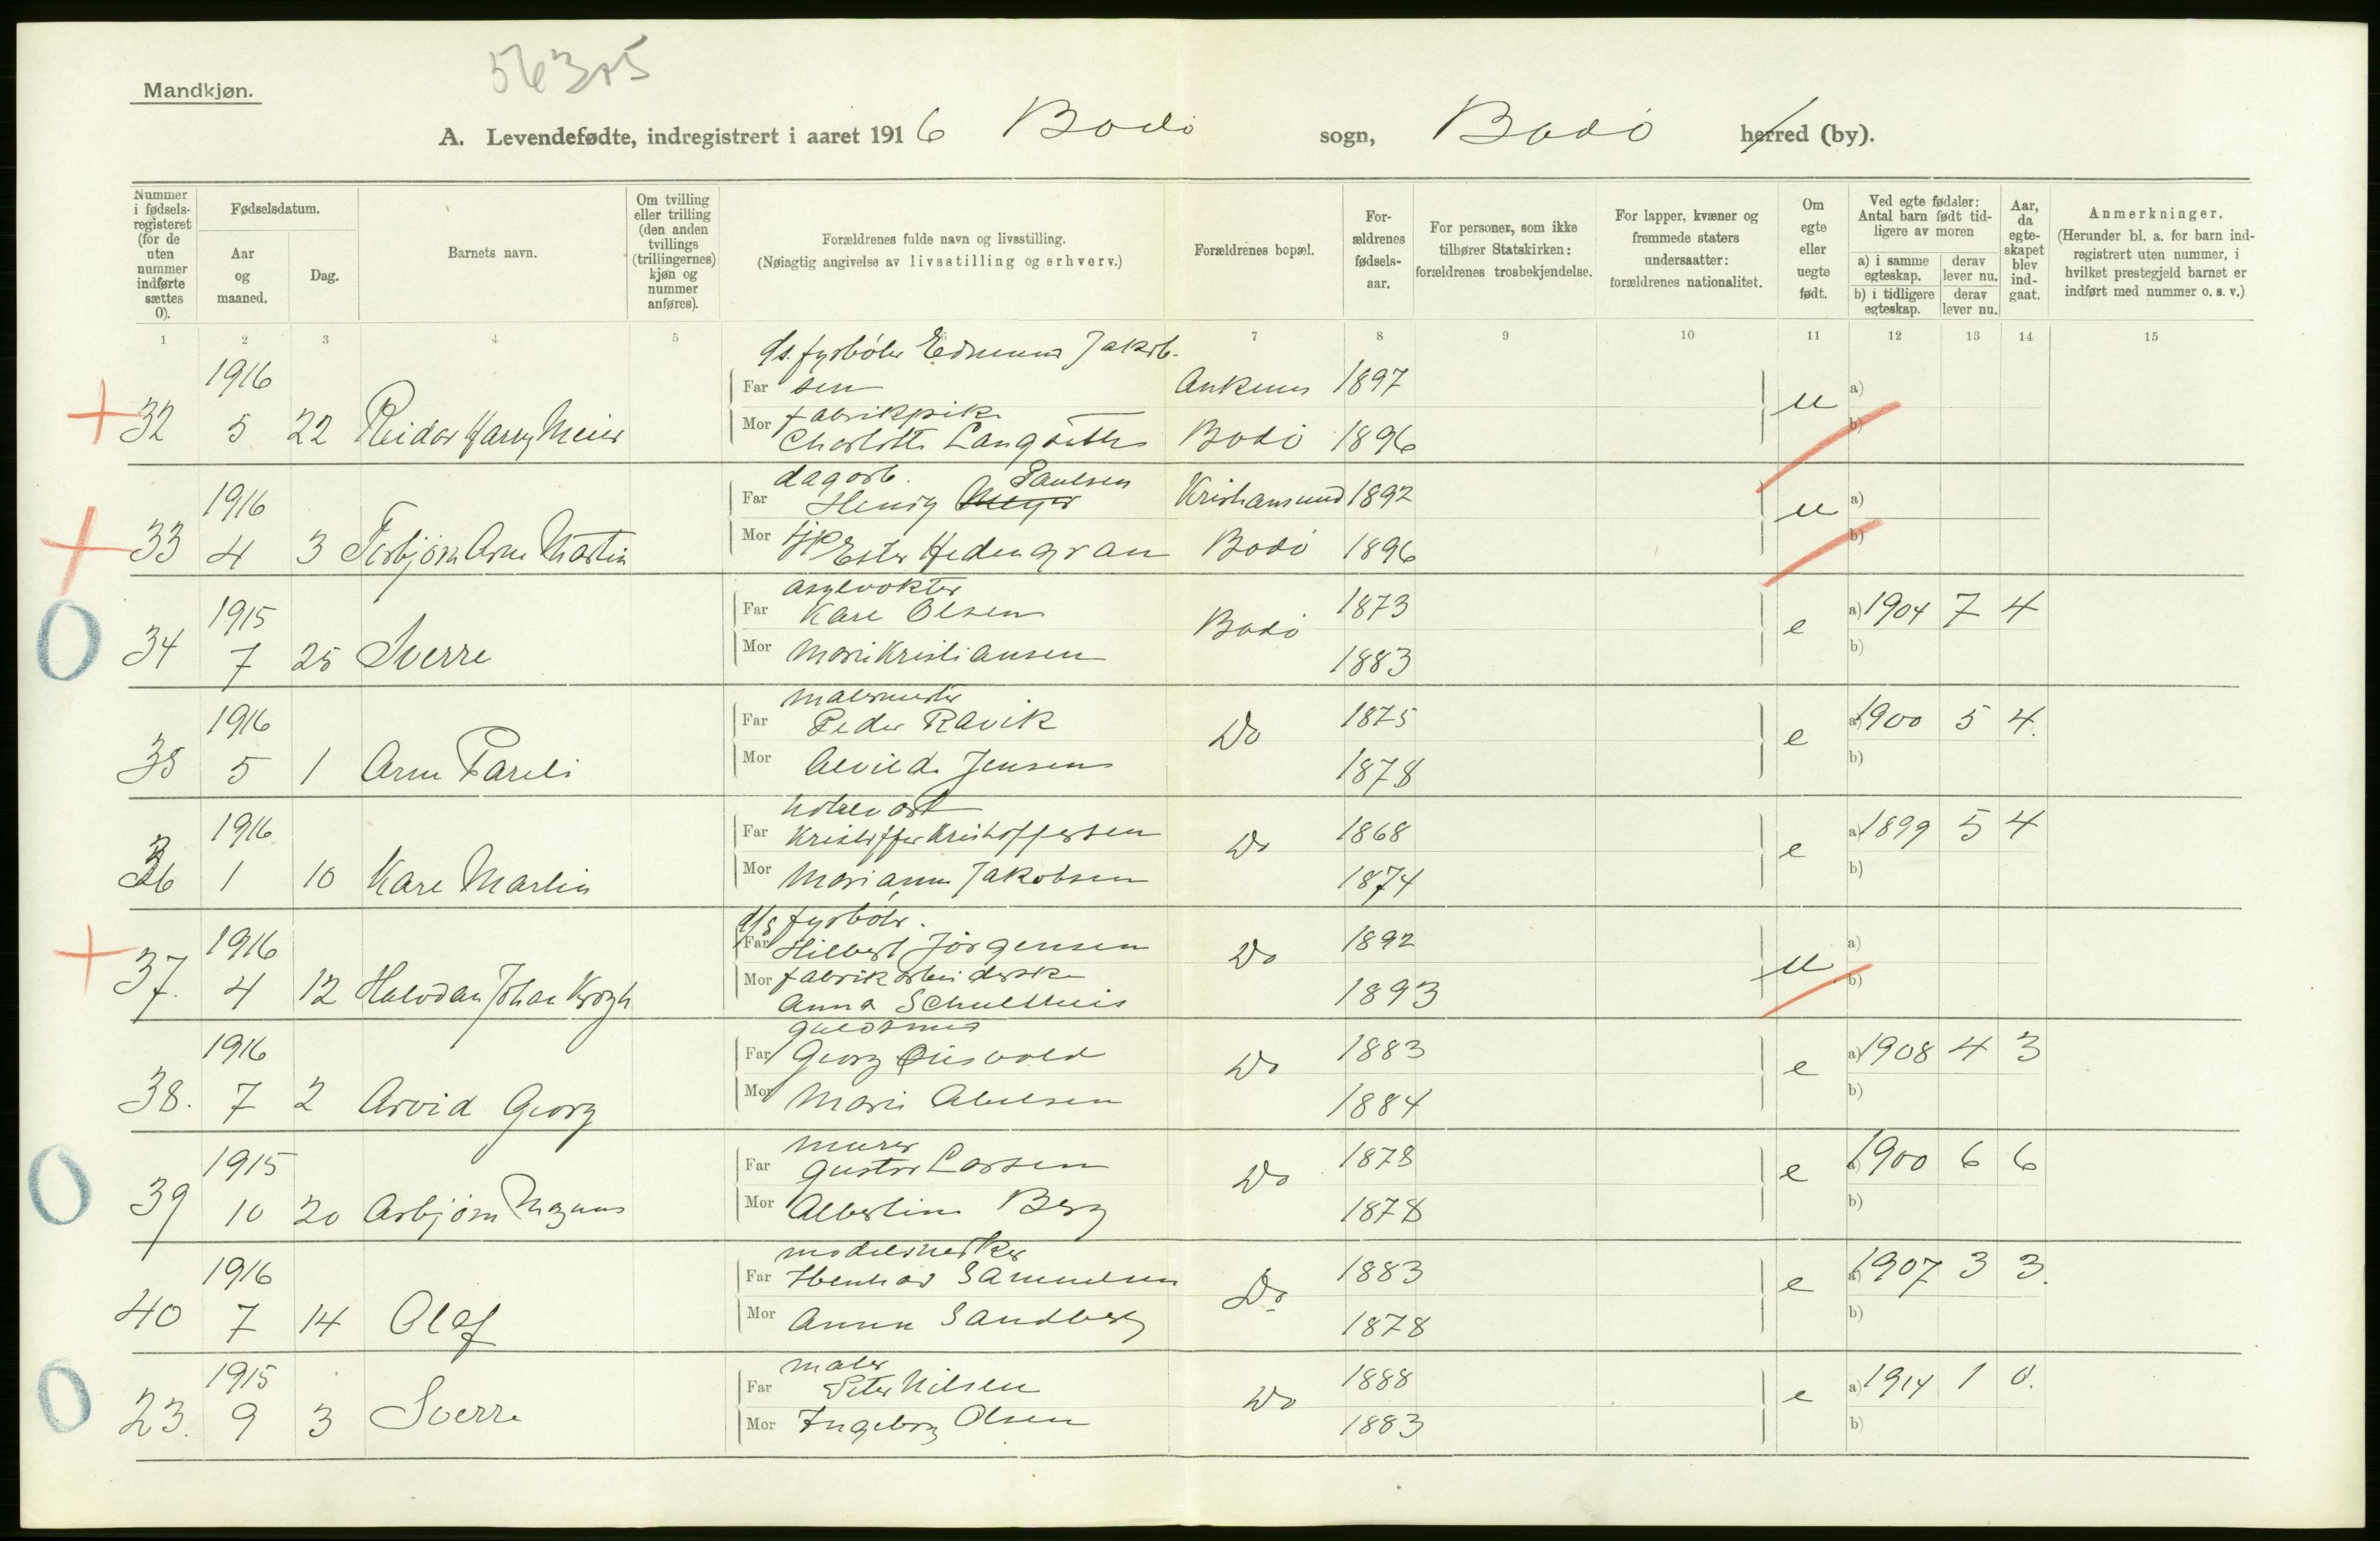 56375
Mandkjøn.
A. Levendefødte, indregistrert i aaret 1916 Bodö sogn, Bodö herred (by).
Nummer i fødsels-registeret (for de uten nummer indførte sættes 0).
Fødselsdatum.
Aar og maaned.
Dag.
Barnets navn.
Om tvilling eller trilling (den anden tvillings (trillingernes) kjøn og nummer anføres).
Forældrenes fulde navn og livsstilling.
(Nøiagtig angivelse av livsstilling og erhverv.)
Forældrenes bopæl.
For-ældrenes fødsels-aar.
For personer, som ikke tilhører Statskirken: forældrenes trosbekjendelse.
For lapper, kvæner og fremmede staters undersaatter: forældrenes nationalitet.
Om egte eller uegte født.
Ved egte fødsler: Antal barn født tid-ligere av moren
a) i samme egteskap.
derav lever nu.
b) i tidligere egteskap.
derav lever nu.
Aar, da egte-skapet blev ind-gaat.
Anmerkninger.
(Herunder bl. a. for barn ind-registrert uten nummer, i hvilket prestegjeld barnet er indført med nummer o. s. v.)
1 2 3 4 5 7 8 9 10 11 12 13 14 15
d/s. fyrböter Edmund Jakob-
1916 Far sen Ankenes 1897 a)
+ 32 5 22 Reidar Harry Meier Mor fabrikpike u
Charlotte Langsæth Bodö 1896 b)
dagarb. Paulsen
1916 Far Henry Meyer Kristiansund 1892 u a)
+ 33 4 3 Torbjörn Arne Martin Mor Ester Hedengran Bodö 1896 b)
asylvokter
1915 Far Kare Olsen Bodö 1873 a) 1904 7 4
0 34 7 25 Sverre Mor Marie Kristiansen 1883 e b)
malermester
1916 Far Peder Ravik Do 1875 a) 1900 5 4.
35 5 1 Arne Pareli Mor Alvilde Jensen 1878 e b)
hotelvært
1916 Far Kristoffer Kristoffersen Do 1868 a) 1899 5 4
36 1 10 Kare Martin Mor Marianne Jakobsen 1874 e b)
d/s fyrböter.
1916 Far Hilbert Jörgensen Do 1892 a)
+ 37. 4 12 Halvdan Johan Krogh Mor fabrikarbeiderske u
Anna Schultheis 1893 b)
guldsmed
1916 Far Georg Do 1883 a) 1908 4 3
38. 7 2 Arvid Georg Mor Marie Abelsen 1884 e b)
murer
1915 Far Gustav Larsen Do 1878 a) 1900 6 6
0 39 10 20 Asbjörn Magnus Mor Albertine Berg 1878 e b)
modelsnekker
1916 Far Samuelsen Do 1883 a) 1907 3 3.
40 7 14 Olaf Mor Anna Sandberg 1878 e b)
maler
1915 Far Peter Nilsen Do 1888 a) 1914 1 0.
0 23. 9 3 Sverre Mor Ingeborg Olsen 1883 e b)